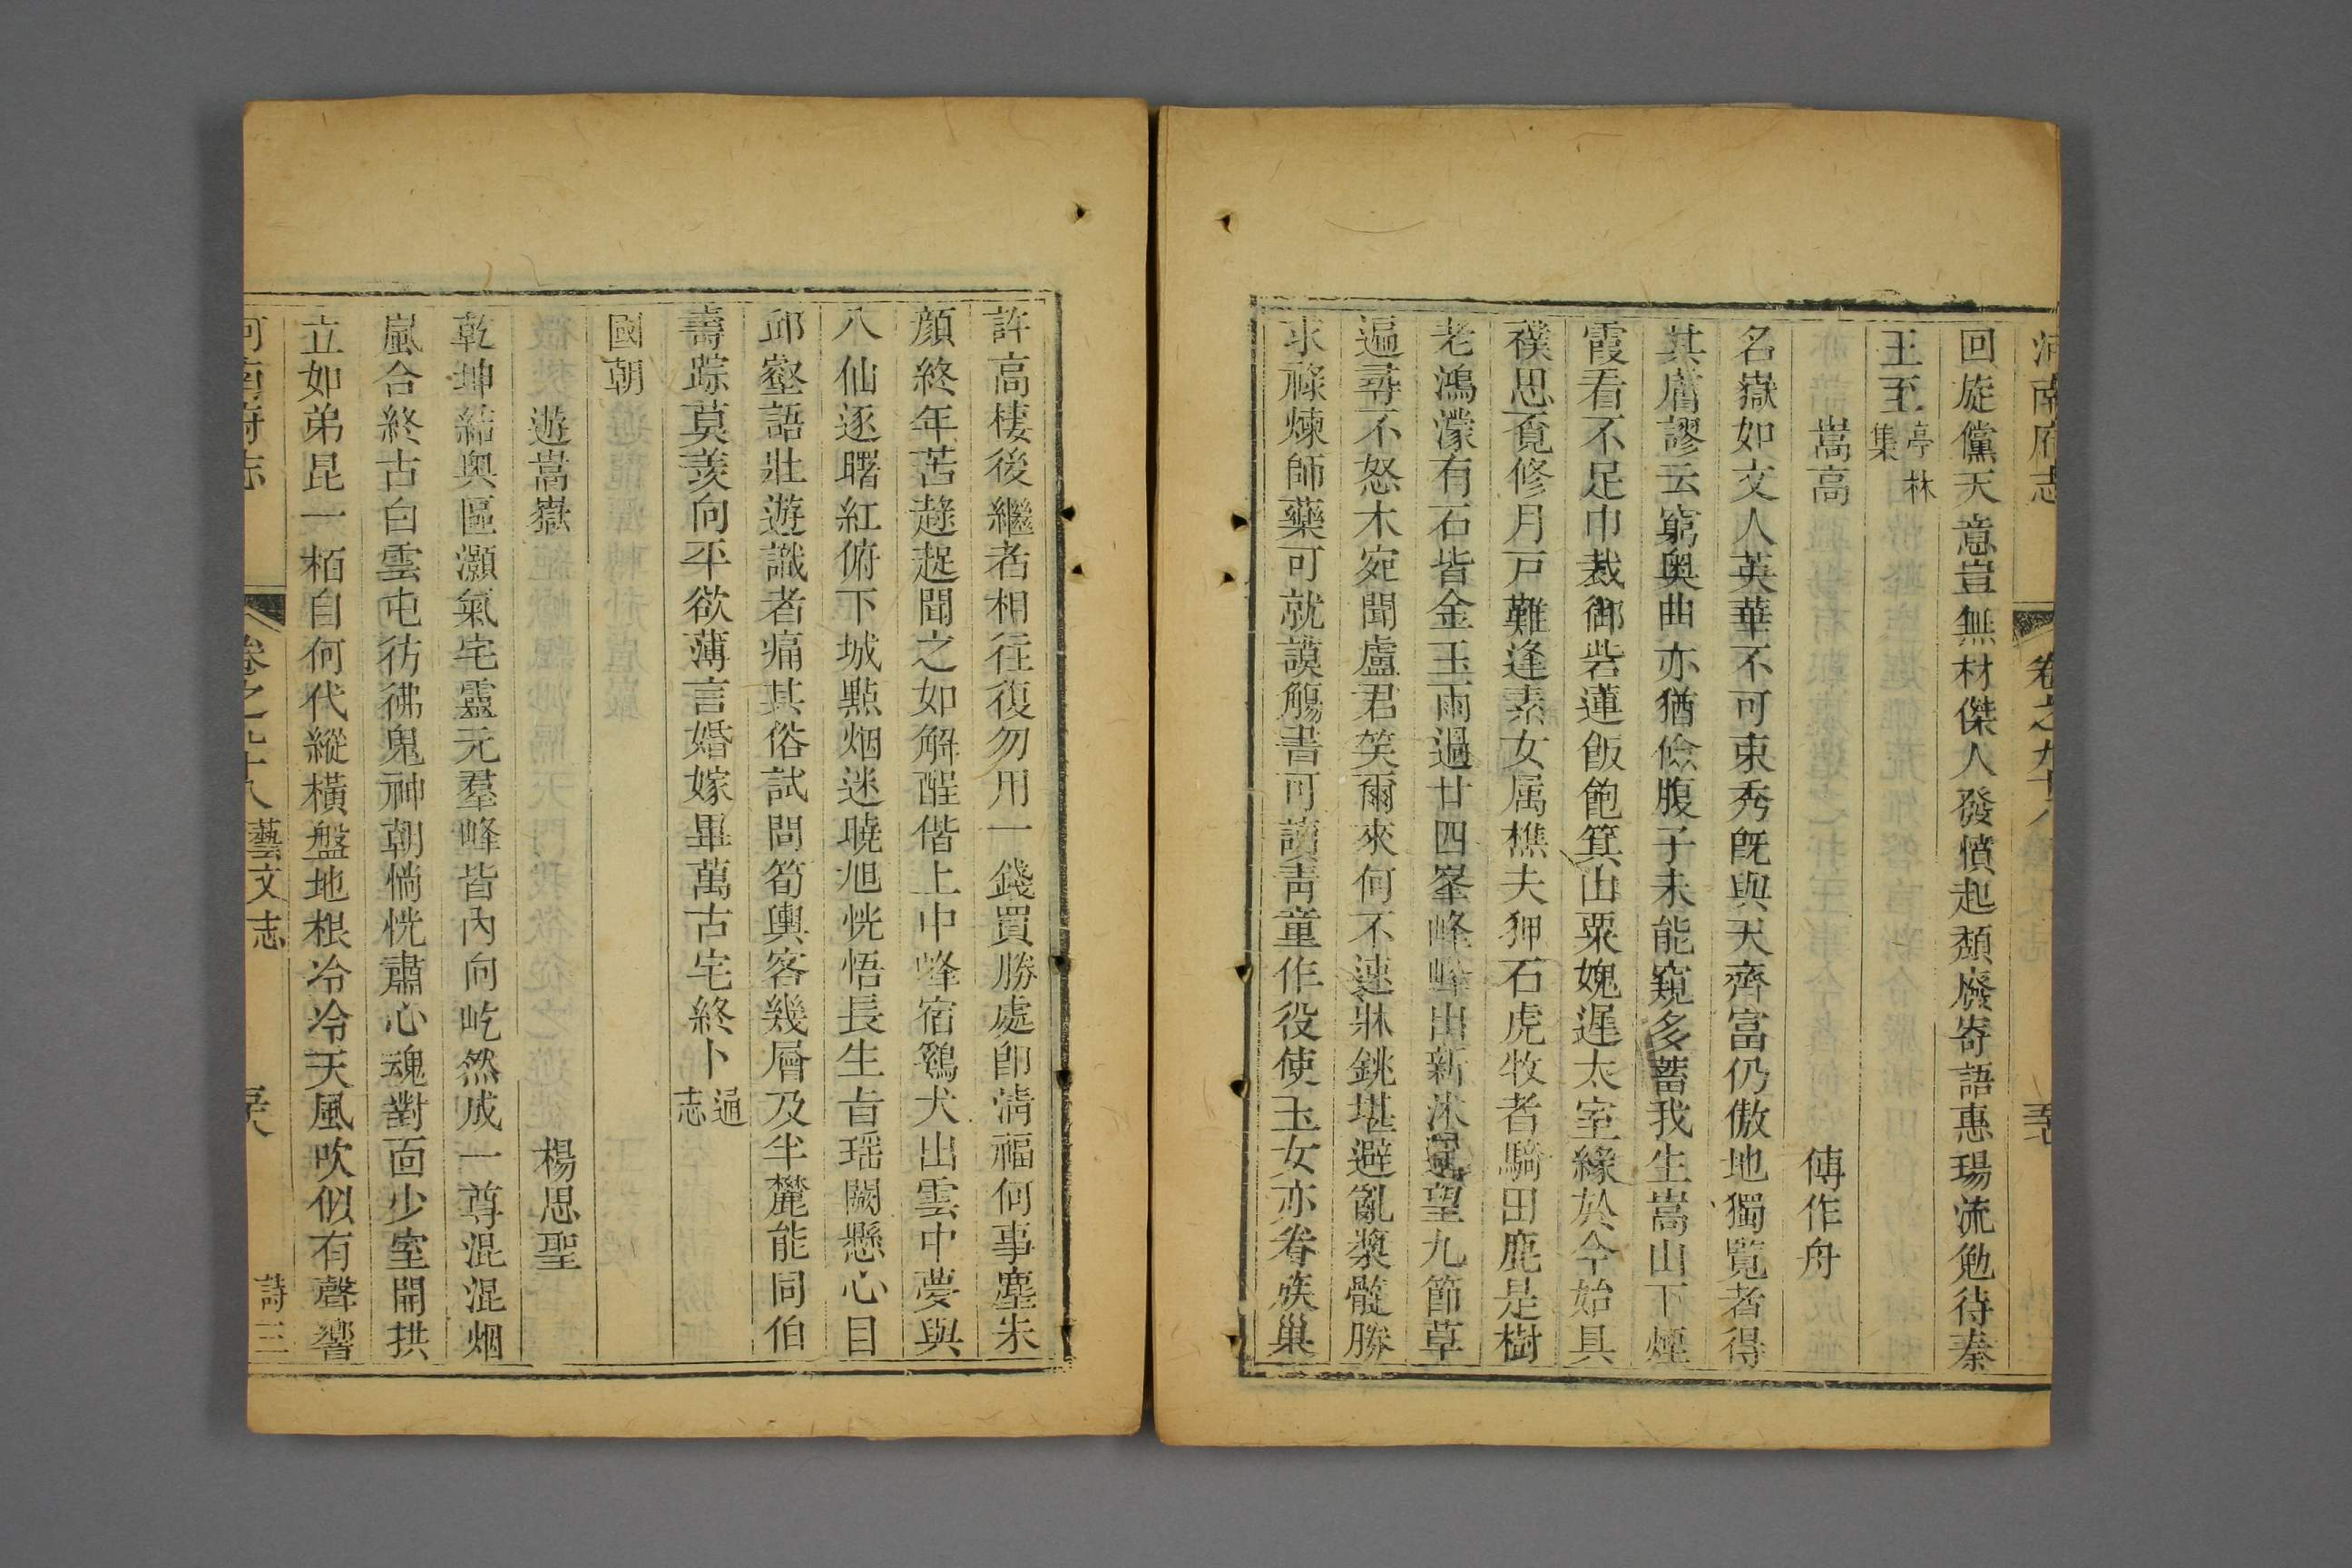 河南府志 卷之九十八
回旋儻天意豈無材傑人發憤起頹廢寄語惠瑒流勉待秦
王至亭林集
嵩高 傅作舟
名嶽如文人英華不可束秀既與天齊富仍傲地獨覽者得
其膚謬云窮奧曲亦猶儉腹子未能窺多蓄我生嵩山下煙
霞看不足巾裁御砦蓮飯飽箕山粟媿遲太室緣於今始具
襆思覔修月戸難逢素女属樵夫狎石虎牧者騎田鹿是樹
老鴻濛有石皆金玉雨過廿四峯峰峰出新沐還望九節草
遍尋不怒木宛聞盧君笑爾來何不速牀銚堪避亂漿髓勝
求祿煉師藥可就謨觴書可讀青童作役使玉女亦眷族巢
許高棲後繼者相往復勿用一錢買勝處卽淸福何事塵朱
顔終年苦趦趄聞之如解酲偕上中峰宿鷄犬出雲中夢與
八仙逐曙紅俯下城㸃烟迷曉旭恍悟長生旨瑶闕懸心目
邱壑語壯遊識者痛其俗試問筍輿客幾層及半麓能同伯
壽踪莫羡向平欲薄言婚嫁畢萬古宅終卜通志
國朝
遊嵩嶽 楊思聖
乾坤結奥區灝氣宅靈元羣峰皆內向屹然成一尊混混烟
嵐合終古白雲屯彷彿鬼神朝惝恍肅心魂對面少室開拱
立如弟昆一栢自何代縱橫盤地根冷冷天風吹似有聲響
河南府志 卷之九十八 藝文志 詩三